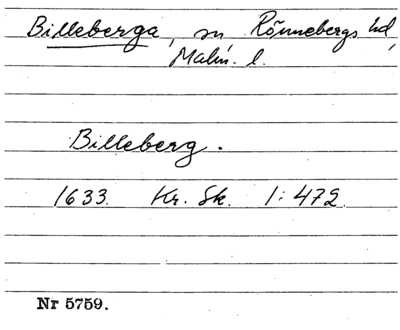 Billeberga, sn Rönnebergs hd,
Malm. l.
Billeberg.
1633. Kr. Sk. 1:472.
Nr 5759.